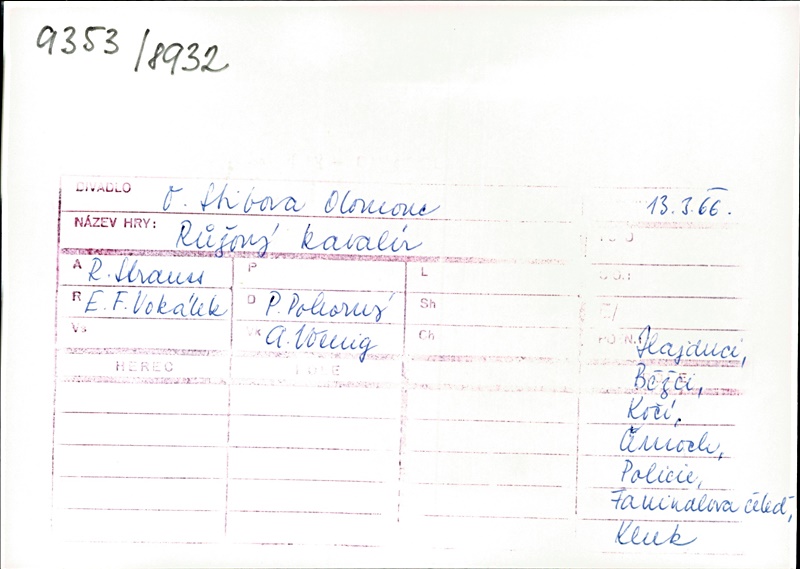 9353/8932
DIVADLO O. Stibora Olomouc 13.3.66.
NÁZEV HRY: Růžový kavalír
A R. Strauss P L
R E. F. Vokálek D P. Pokorný Sh
Vs Vk A. Wenig Ch
POZN. Hajduci,
HEREC ROLE Běžci,
Kočí,
Černoch,
Policie,
Faninalova čeleď,
Kluk